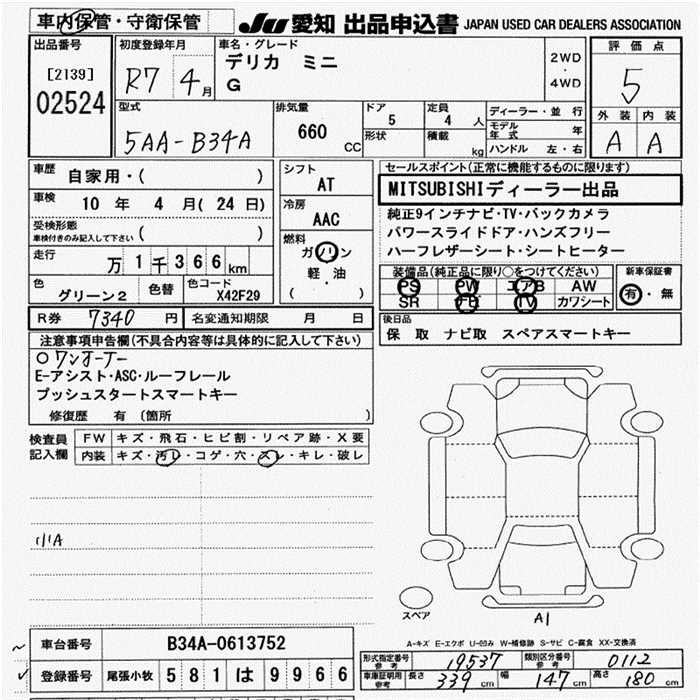 車内保管・守衛保管 JU 愛知 出品申込書 JAPAN USED CAR DEALERS ASSOCIATION
出品番号 初度登録年月 車名・グレード 評価点
[2139] R7 4月 デリカ ミニ 2WD
02524 G ・ 4WD 5
型式 排気量 ドア 定員 ディーラー・並行 外装 内装
5AA-B34A 660 CC 5 4 人 モデル年式 年 A A
形状 積載 kg ハンドル 左・右
車歴 自家用・( ) シフト セールスポイント(正常に機能するものに限ります)
AT MITSUBISHIディーラー出品
車検 10 年 4 月( 24 日) 冷房 純正9インチナビ・TV・バックカメラ
受検形態 AAC パワースライドドア・ハンズフリー
車検付きのみ記入して下さい ( ) 燃料 ハーフレザーシート・シートヒーター
走行 万 1 千 3 6 6 km ガソリン 装備品(純正品に限り○をつけてください) 新車保証書
軽・油 PS PW エアB AW 有・無
色 グリーン2 色替 色コード X42F29 ( ) SR FB TV カワシート
R券 7340 円 名変通知期限 月 日 後日品
保 取 ナビ取 スペアスマートキー
注意事項申告欄(不具合内容等は具体的に記入して下さい)
○ワンオーナー
E-アシスト・ASC・ルーフレール
プッシュスタートスマートキー
修復歴 有 (箇所 )
検査員 FW キズ・飛石・ヒビ割・リペア跡・X要
記入欄 内装 キズ・汚レ・コゲ・穴・スレ・キレ・破レ
小A
スペア A1
A-キズ E-エクボ U-凹み W-補修跡 S-サビ C-腐食 XX-交換済
車台番号 B34A-0613752
登録番号 尾張小牧 5 8 1 は 9 9 6 6
形式指定番号 参考 19537 類別区分番号 参考 0112
車庫証明用 参考 長さ 339 cm 幅 147 cm 高さ 180 cm